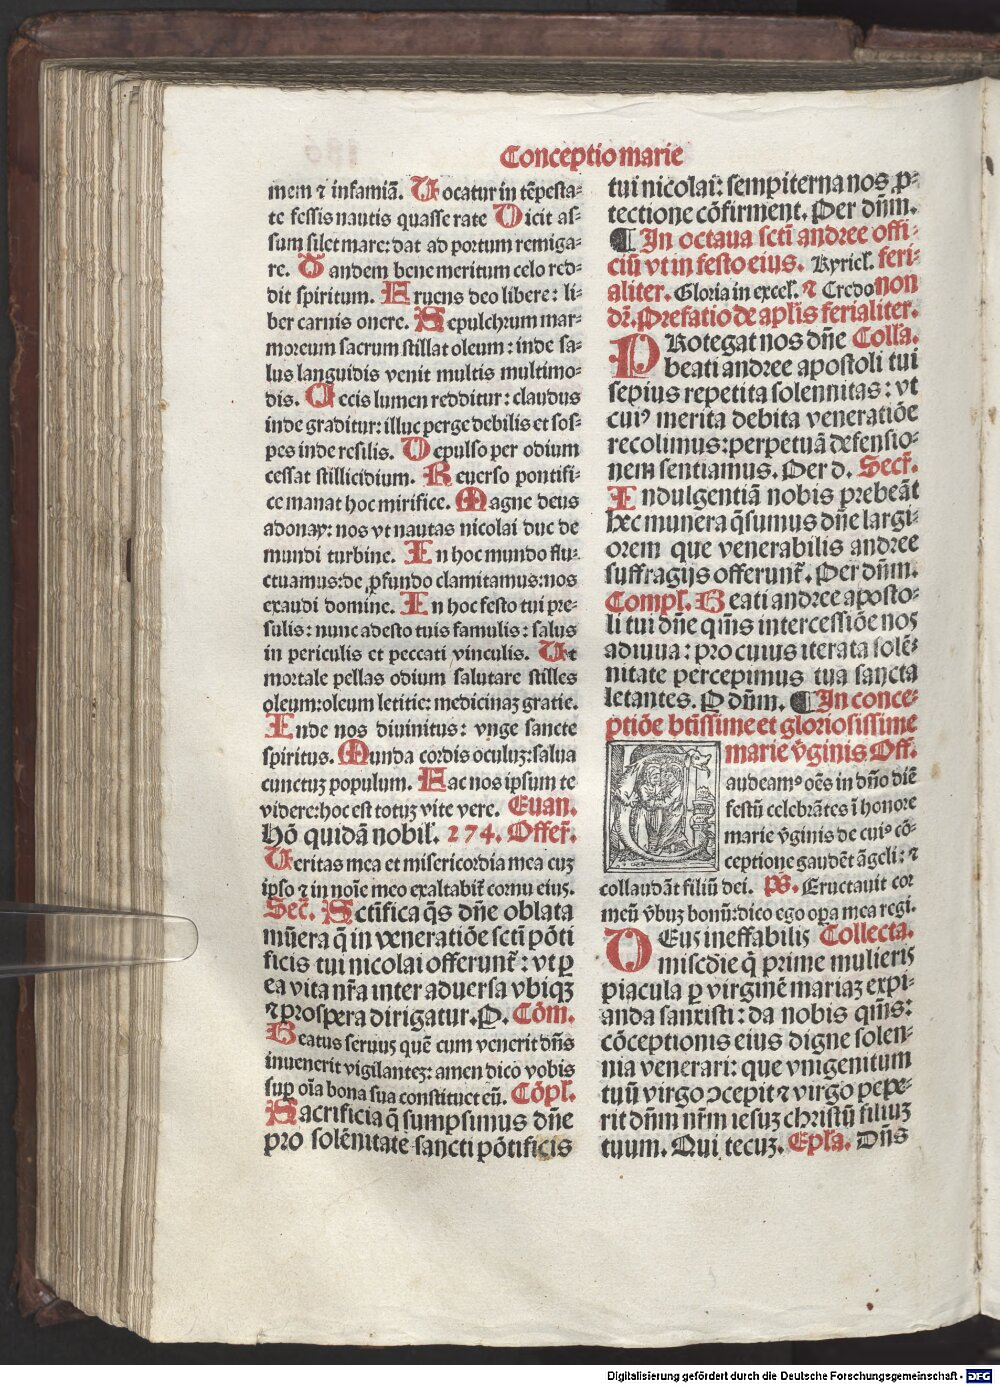 Conceptio marie
mem ⁊ infamiā. Vocatur in tēpesta-
te fessis nautis quasse rate Dicit as-
sum silet mare: dat ad portum remiga-
re. Tandem bene meritum celo red-
dit spiritum. Eruens deo libere: li-
ber carnis onere. Sepulchrum mar-
moreum sacrum stillat oleum: inde sa-
lus languidis venit multis multimo-
dis. Cecis lumen redditur: claudus
inde graditur: illuc perge debilis et sos-
pes inde resilis. Depulso per odium
cessat stillicidium. Reuerso pontifi-
ce manat hoc mirifice. Magne deus
adonay: nos vt nautas nicolai duc de
mundi turbine. In hoc mundo flu-
ctuamus: de ꝓfundo clamitamus: nos
exaudi domine. In hoc festo tui pre-
sulis: nunc adesto tuis famulis: salus
in periculis et peccati vinculis. Vt
mortale pellas odium salutare stilles
oleum: oleum letitie: medicinaʒ gratie.
Inde nos diuinitus: vnge sancte
spiritus. Munda cordis oculuʒ: salua
cunctuʒ populum. Hac nos ipsum te
videre: hoc est totuʒ vite vere. Euan.
Hō quidā nobil. 274. Offer̄.
Veritas mea et misericordia mea cuʒ
ipso ⁊ in noīe meo exaltabit̄ cornu eius.
Sec̄. Sctīfica q̄s dn̄e oblata
mūera q̄ in veneratiōe sctī pōti
ficis tui nicolai offerunt̄: vt ꝑ
ea vita nr̄a inter aduersa vbiqʒ
⁊ prospera dirigatur. P. Cōm.
Beatus seruus quē cum venerit dn̄s
inuenerit vigilanteʒ: amen dico vobis
suꝑ oīa bona sua constituet eū. Cōpl.
Sacrificia q̄ sumpsimus dn̄e
pro solēnitate sancti pōtificis
tui nicolai: sempiterna nos ꝓ-
tectione cōfirment. Per dn̄m.
¶ In octaua sctī andree offi-
ciū vt in festo eius. Kyriel. feri-
aliter. Gloria in excel. ⁊ Credo non
dr̄. Prefatio de apl̄is ferialiter.
PRotegat nos dn̄e Colla.
beati andree apostoli tui
sepius repetita solennitas: vt
cuiꝰ merita debita veneratiōe
recolimus: perpetuā defensio-
nem sentiamus. Per d. Secr̄.
Indulgentiā nobis prebeāt
hec munera q̄sumus dn̄e largi-
orem que venerabilis andree
suffragijs offerunt̄. Per dn̄m.
Compl. Beati andree aposto-
li tui dn̄e qm̄s intercessiōe nos
adiuua: pro cuius iterata solē-
nitate percepimus tua sancta
letantes. P dn̄m. ¶ In conce-
ptiōe btīssime et gloriosissime
marie v̄ginis Off.
Gaudeamꝰ oēs in dn̄o diē
festū celebrātes ī honore
marie v̄ginis de cuiꝰ cō-
ceptione gaudēt āgeli: ⁊
collaudāt filiū dei. Ps. Eructauit cor
meū v̄buʒ bonū: dico ego oꝑa mea regi.
DEus ineffabilis Collecta.
miscdīe q̄ prime mulieris
piacula ꝑ virginē mariaʒ expi-
anda sanxisti: da nobis qm̄s:
cōceptionis eius digne solen-
nia venerari: que vnigenitum
tuū virgo ↄcepit ⁊ virgo pepe-
rit dn̄m nr̄m iesuʒ christū filiuʒ
tuum. Qui tecuʒ. Epl̄a. Dn̄s
Digitalisierung gefördert durch die Deutsche Forschungsgemeinschaft - DFG